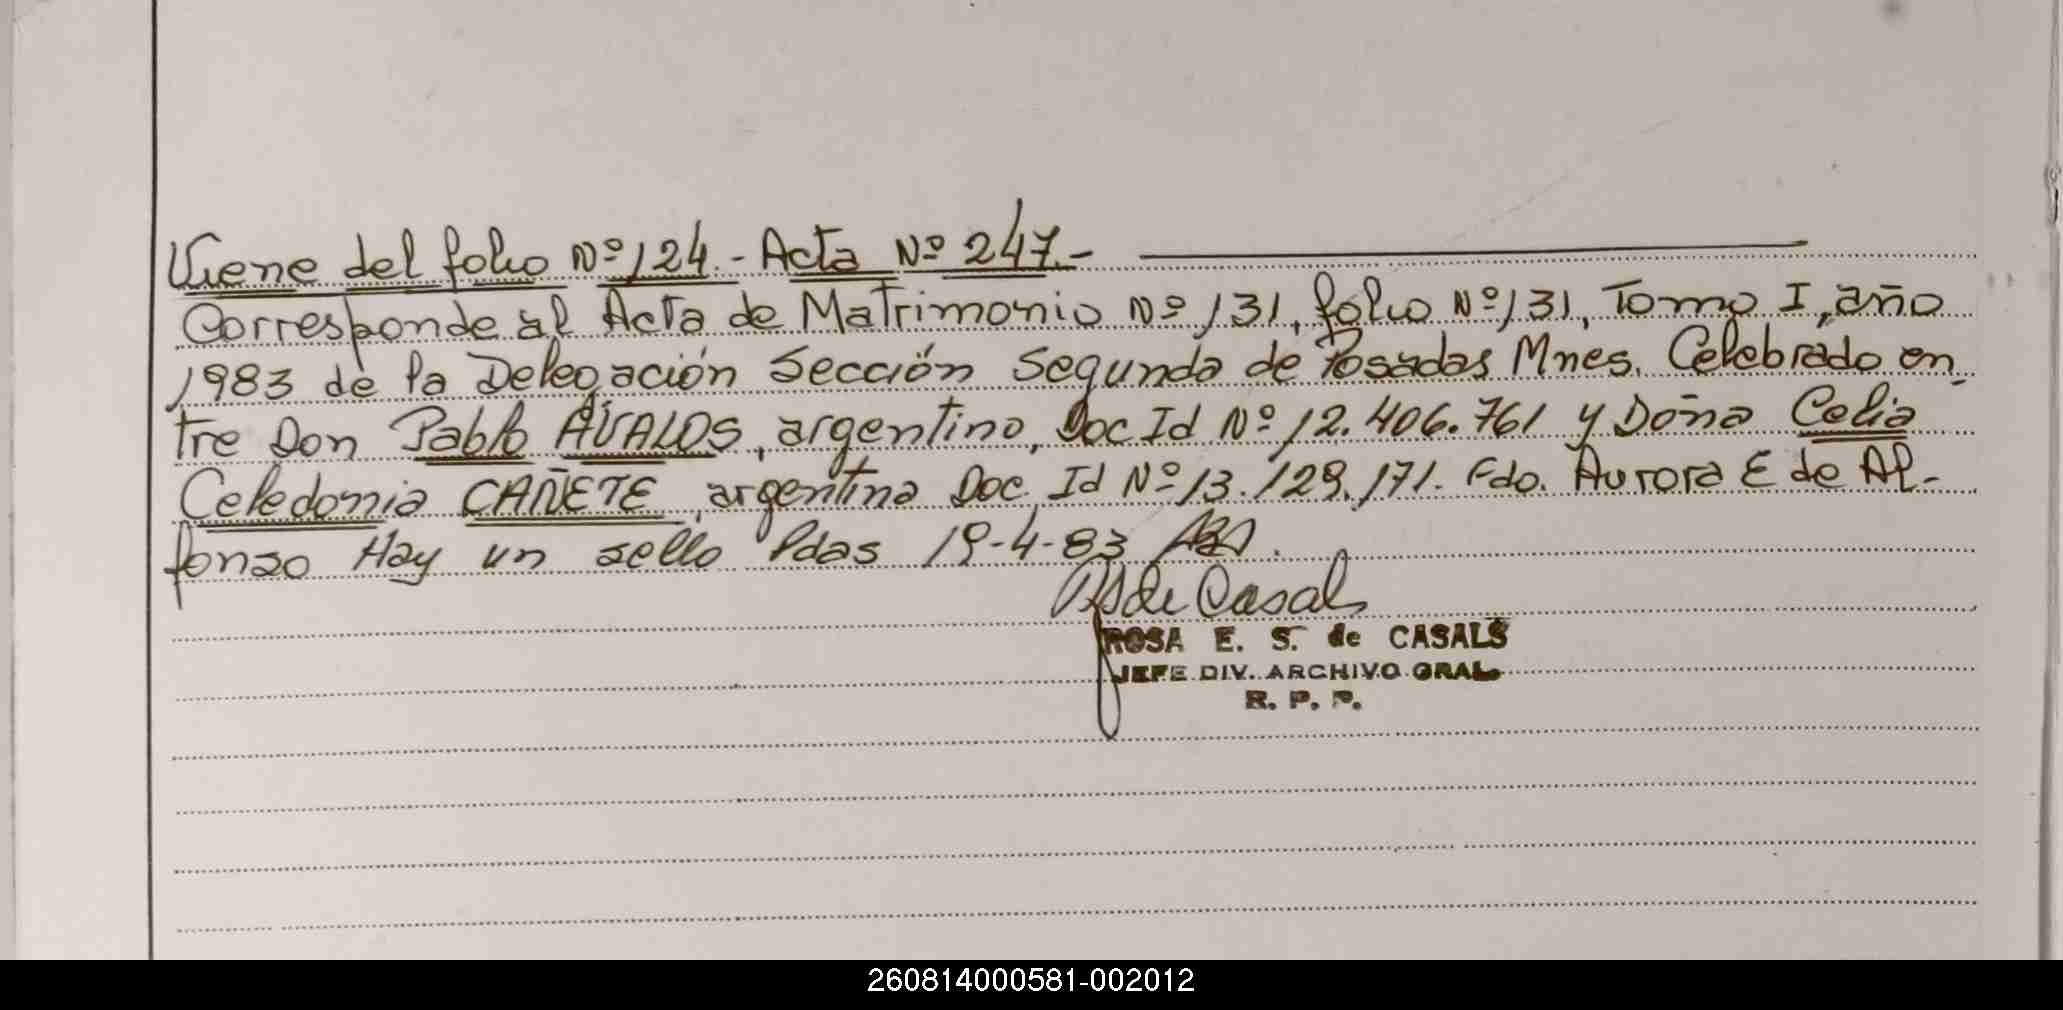 Viene del folio Nº 124.- Acta Nº 247.-
Corresponde al Acta de Matrimonio Nº 131, folio Nº 131, Tomo I, año
1983 de la Delegación Sección Segunda de Posadas Mnes. Celebrado en
tre Don Pablo ÁVALOS, argentino, Doc Id Nº 12.406.761 y Doña Celia
Celedonia CAÑETE, argentina Doc. Id Nº 13.129.171. Fdo. Aurora E de Al-
fonso Hay un sello Pdas 19-4-83
de Casals
ROSA E. S. de CASALS
JEFE DIV. ARCHIVO GRAL
R. P. P.
260814000581-002012